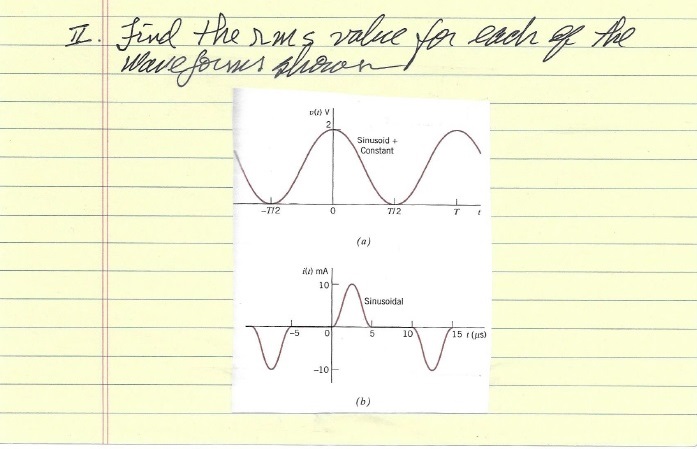 II. Find the rms value for each of the
waveforms shown
v(t) V
2
Sinusoid +
Constant
-T/2 0 T/2 T t
(a)
i(t) mA
10
Sinusoidal
-5 0 5 10 15 t (μs)
-10
(b)